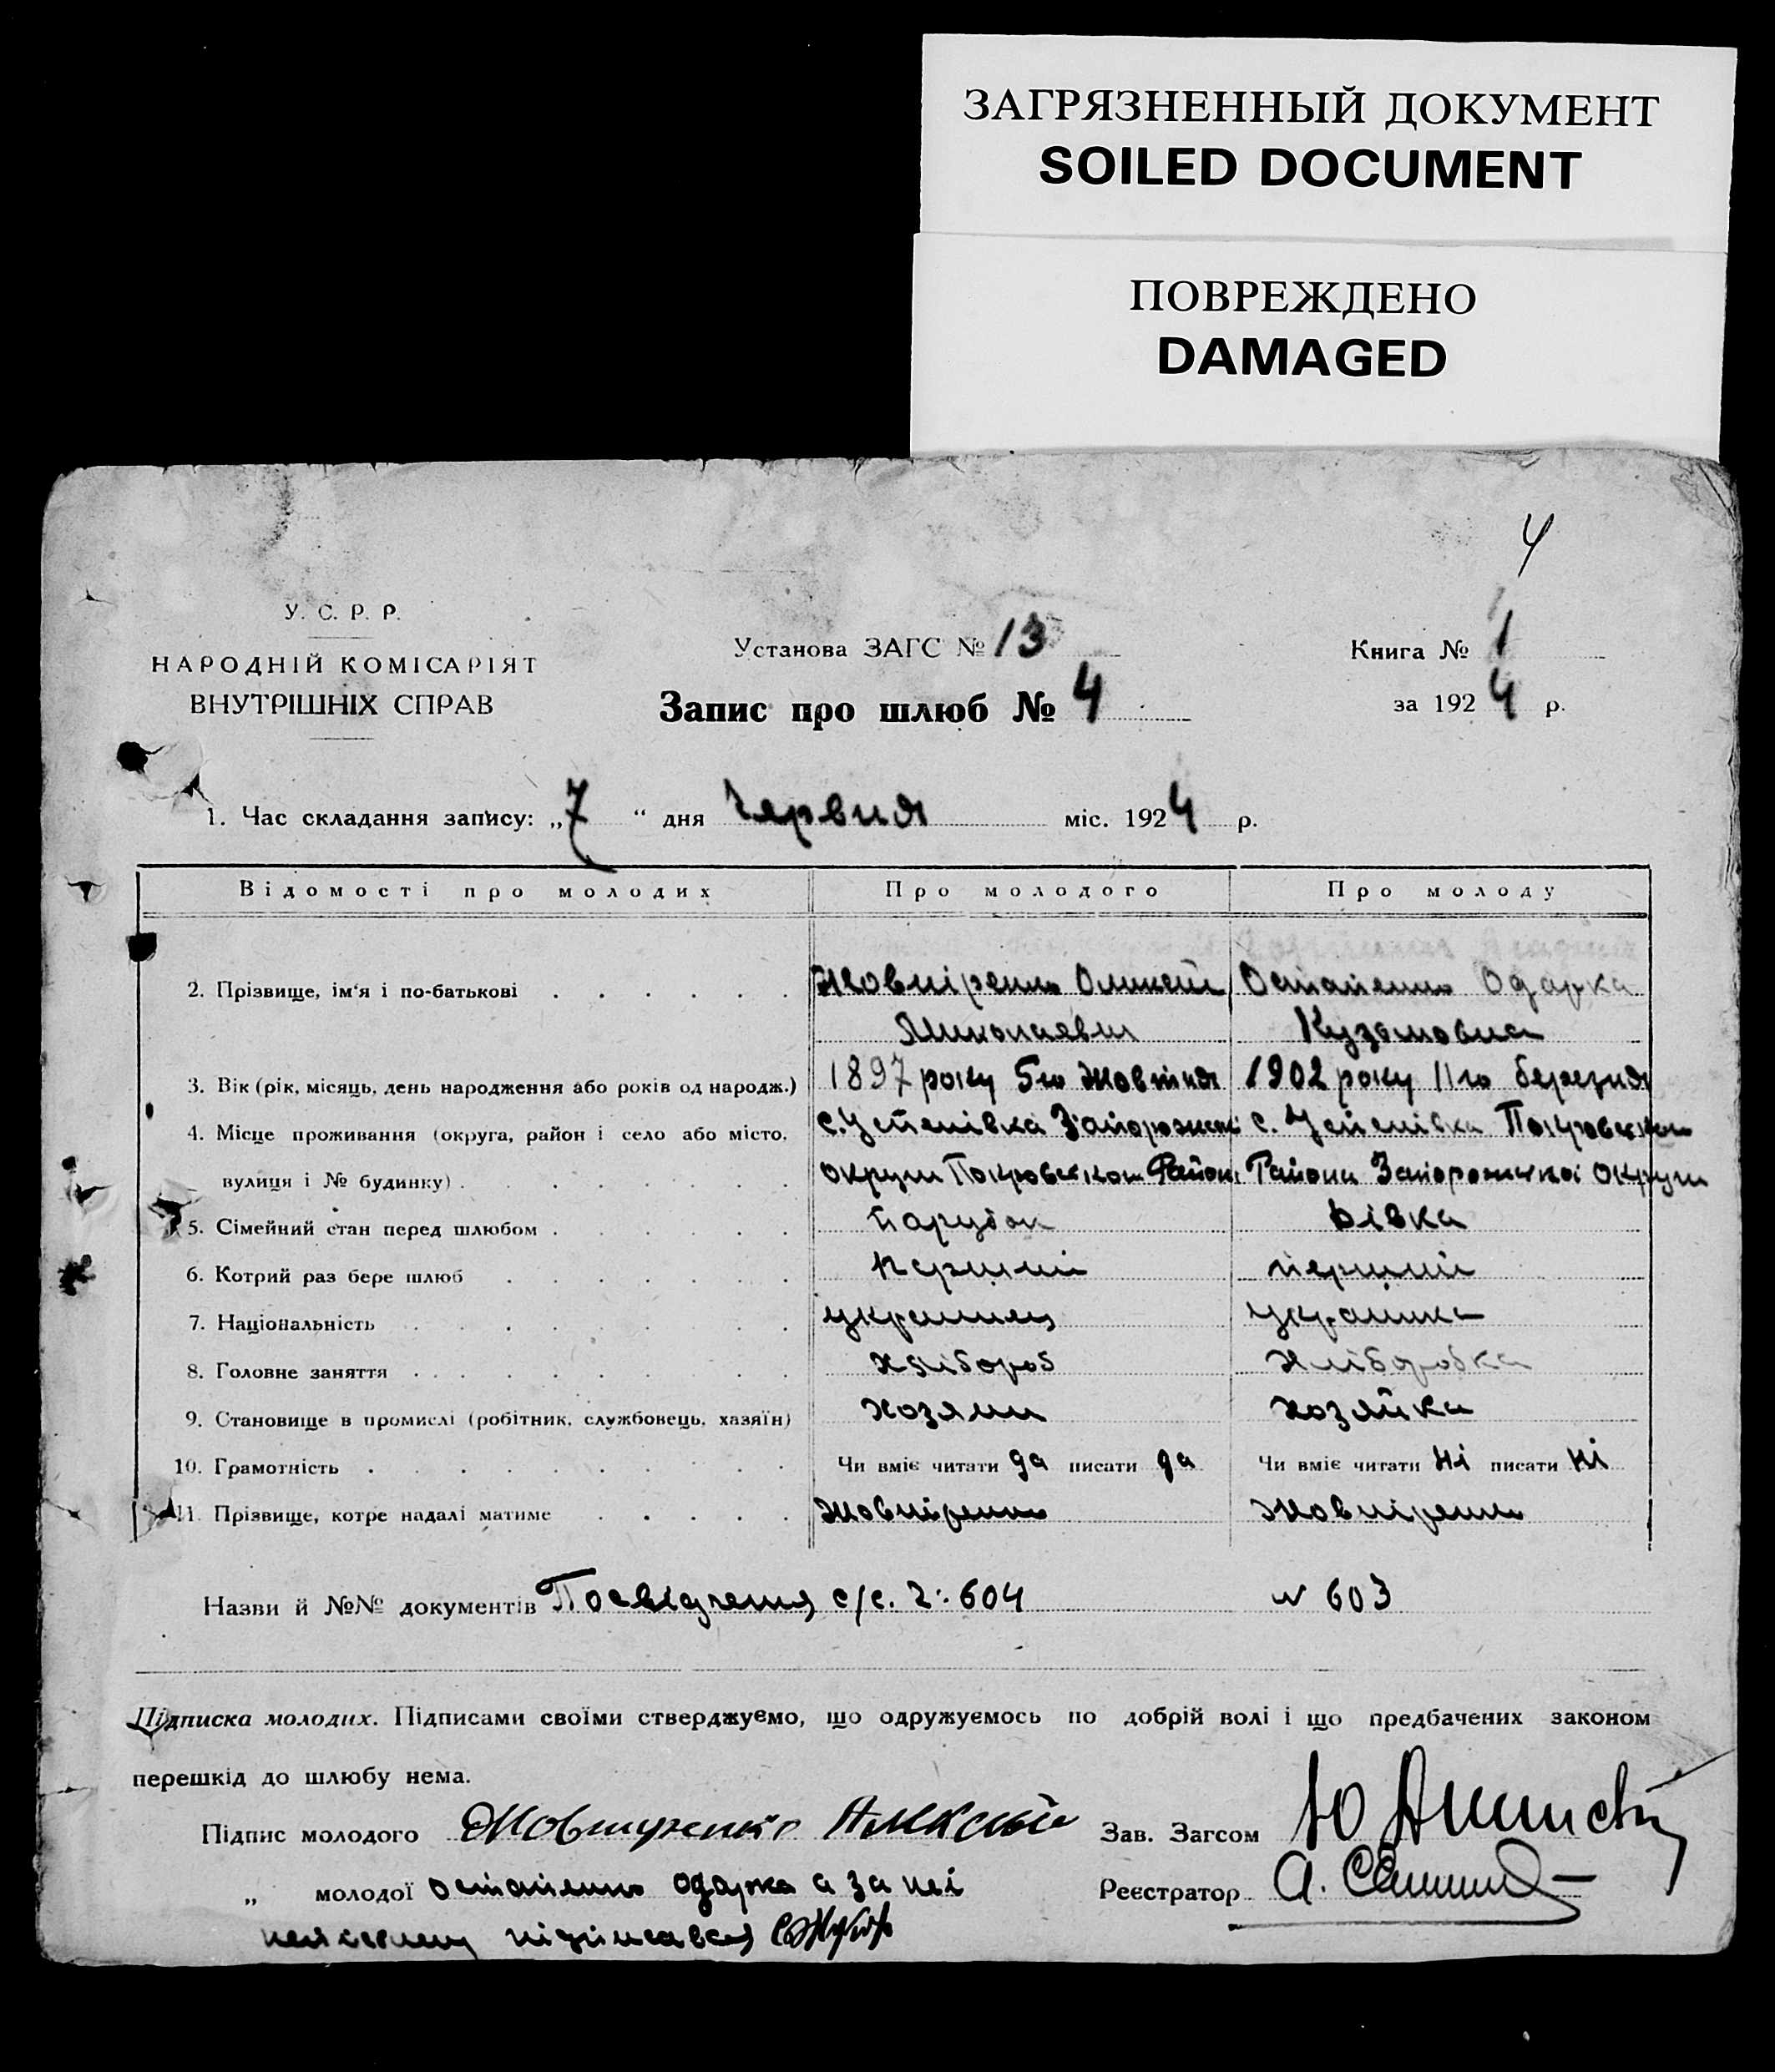 ЗАГРЯЗНЕННЫЙ ДОКУМЕНТ
SOILED DOCUMENT
ПОВРЕЖДЕНО
DAMAGED
4
У. С. Р. Р.
НАРОДНІЙ КОМІСАРІЯТ
ВНУТРІШНІХ СПРАВ
Установа ЗАГС № 13
Запис про шлюб № 4
Книга № 1
за 1924 р.
1. Час складання запису: „7“ дня Червня міс. 1924 р.
Відомості про молодих Про молодого Про молоду
2. Прізвище, ім'я і по-батькові Жовніренко Олексій Остапенко Одарка
Миколаевич Кузьмовна
3. Вік (рік, місяць, день народження або років од народж.) 1897 року 5го жовтня 1902 року 11го березня
4. Місце проживання (округа, район і село або місто, с. Успенівка Запорожскоі с. Успенівка Покровского
вулиця і № будинку) округи Покровского Району Района Запорожскоі округи
5. Сімейний стан перед шлюбом парубок дівка
6. Котрий раз бере шлюб перший перший
7. Національність украинец украинка
8. Головне заняття хлібороб хліборобка
9. Становище в промислі (робітник, службовець, хазяїн) хозяин хозяйка
10. Грамотність Чи вміє читати да писати да Чи вміє читати ні писати ні
11. Прізвище, котре надалі матиме Жовніренко Жовніренко
Назви й №№ документів Посвідчення с/с. 2: 604 № 603
Підписка молодих. Підписами своїми стверджуємо, що одружуємось по добрій волі і що предбачених законом
перешкід до шлюбу нема.
Підпис молодого Жовниренко Алексей Зав. Загсом
„ молодої остапенко одарка а за неі Реєстратор А.
підписався